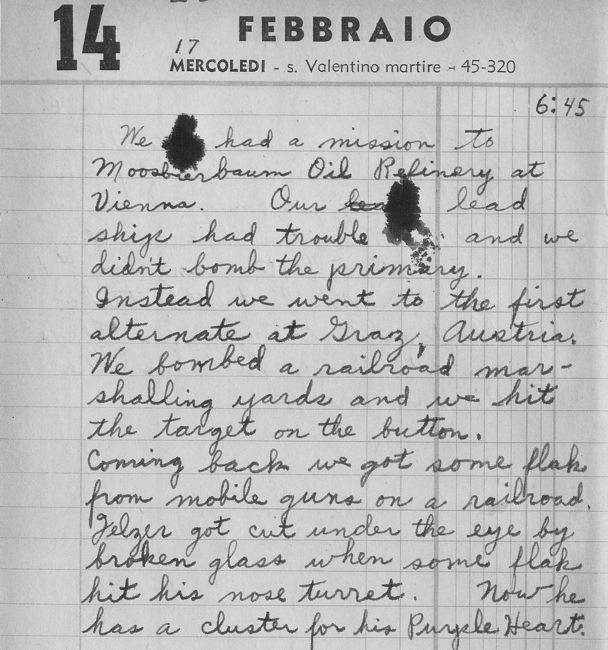 14 FEBBRAIO
17
MERCOLEDI - s. Valentino martire - 45-320
6:45
We had a mission to
Moosbierbaum Oil Refinery at
Vienna. Our lead
ship had trouble and we
didnt bomb the primary.
Instead we went to the first
alternate at Graz, Austria.
We bombed a railroad mar-
shalling yards and we hit
the target on the button.
Coming back we got some flak
from mobile guns on a railroad.
Jelzer got cut under the eye by
broken glass when some flak
hit his nose turret. Now he
has a cluster for his Purple Heart.